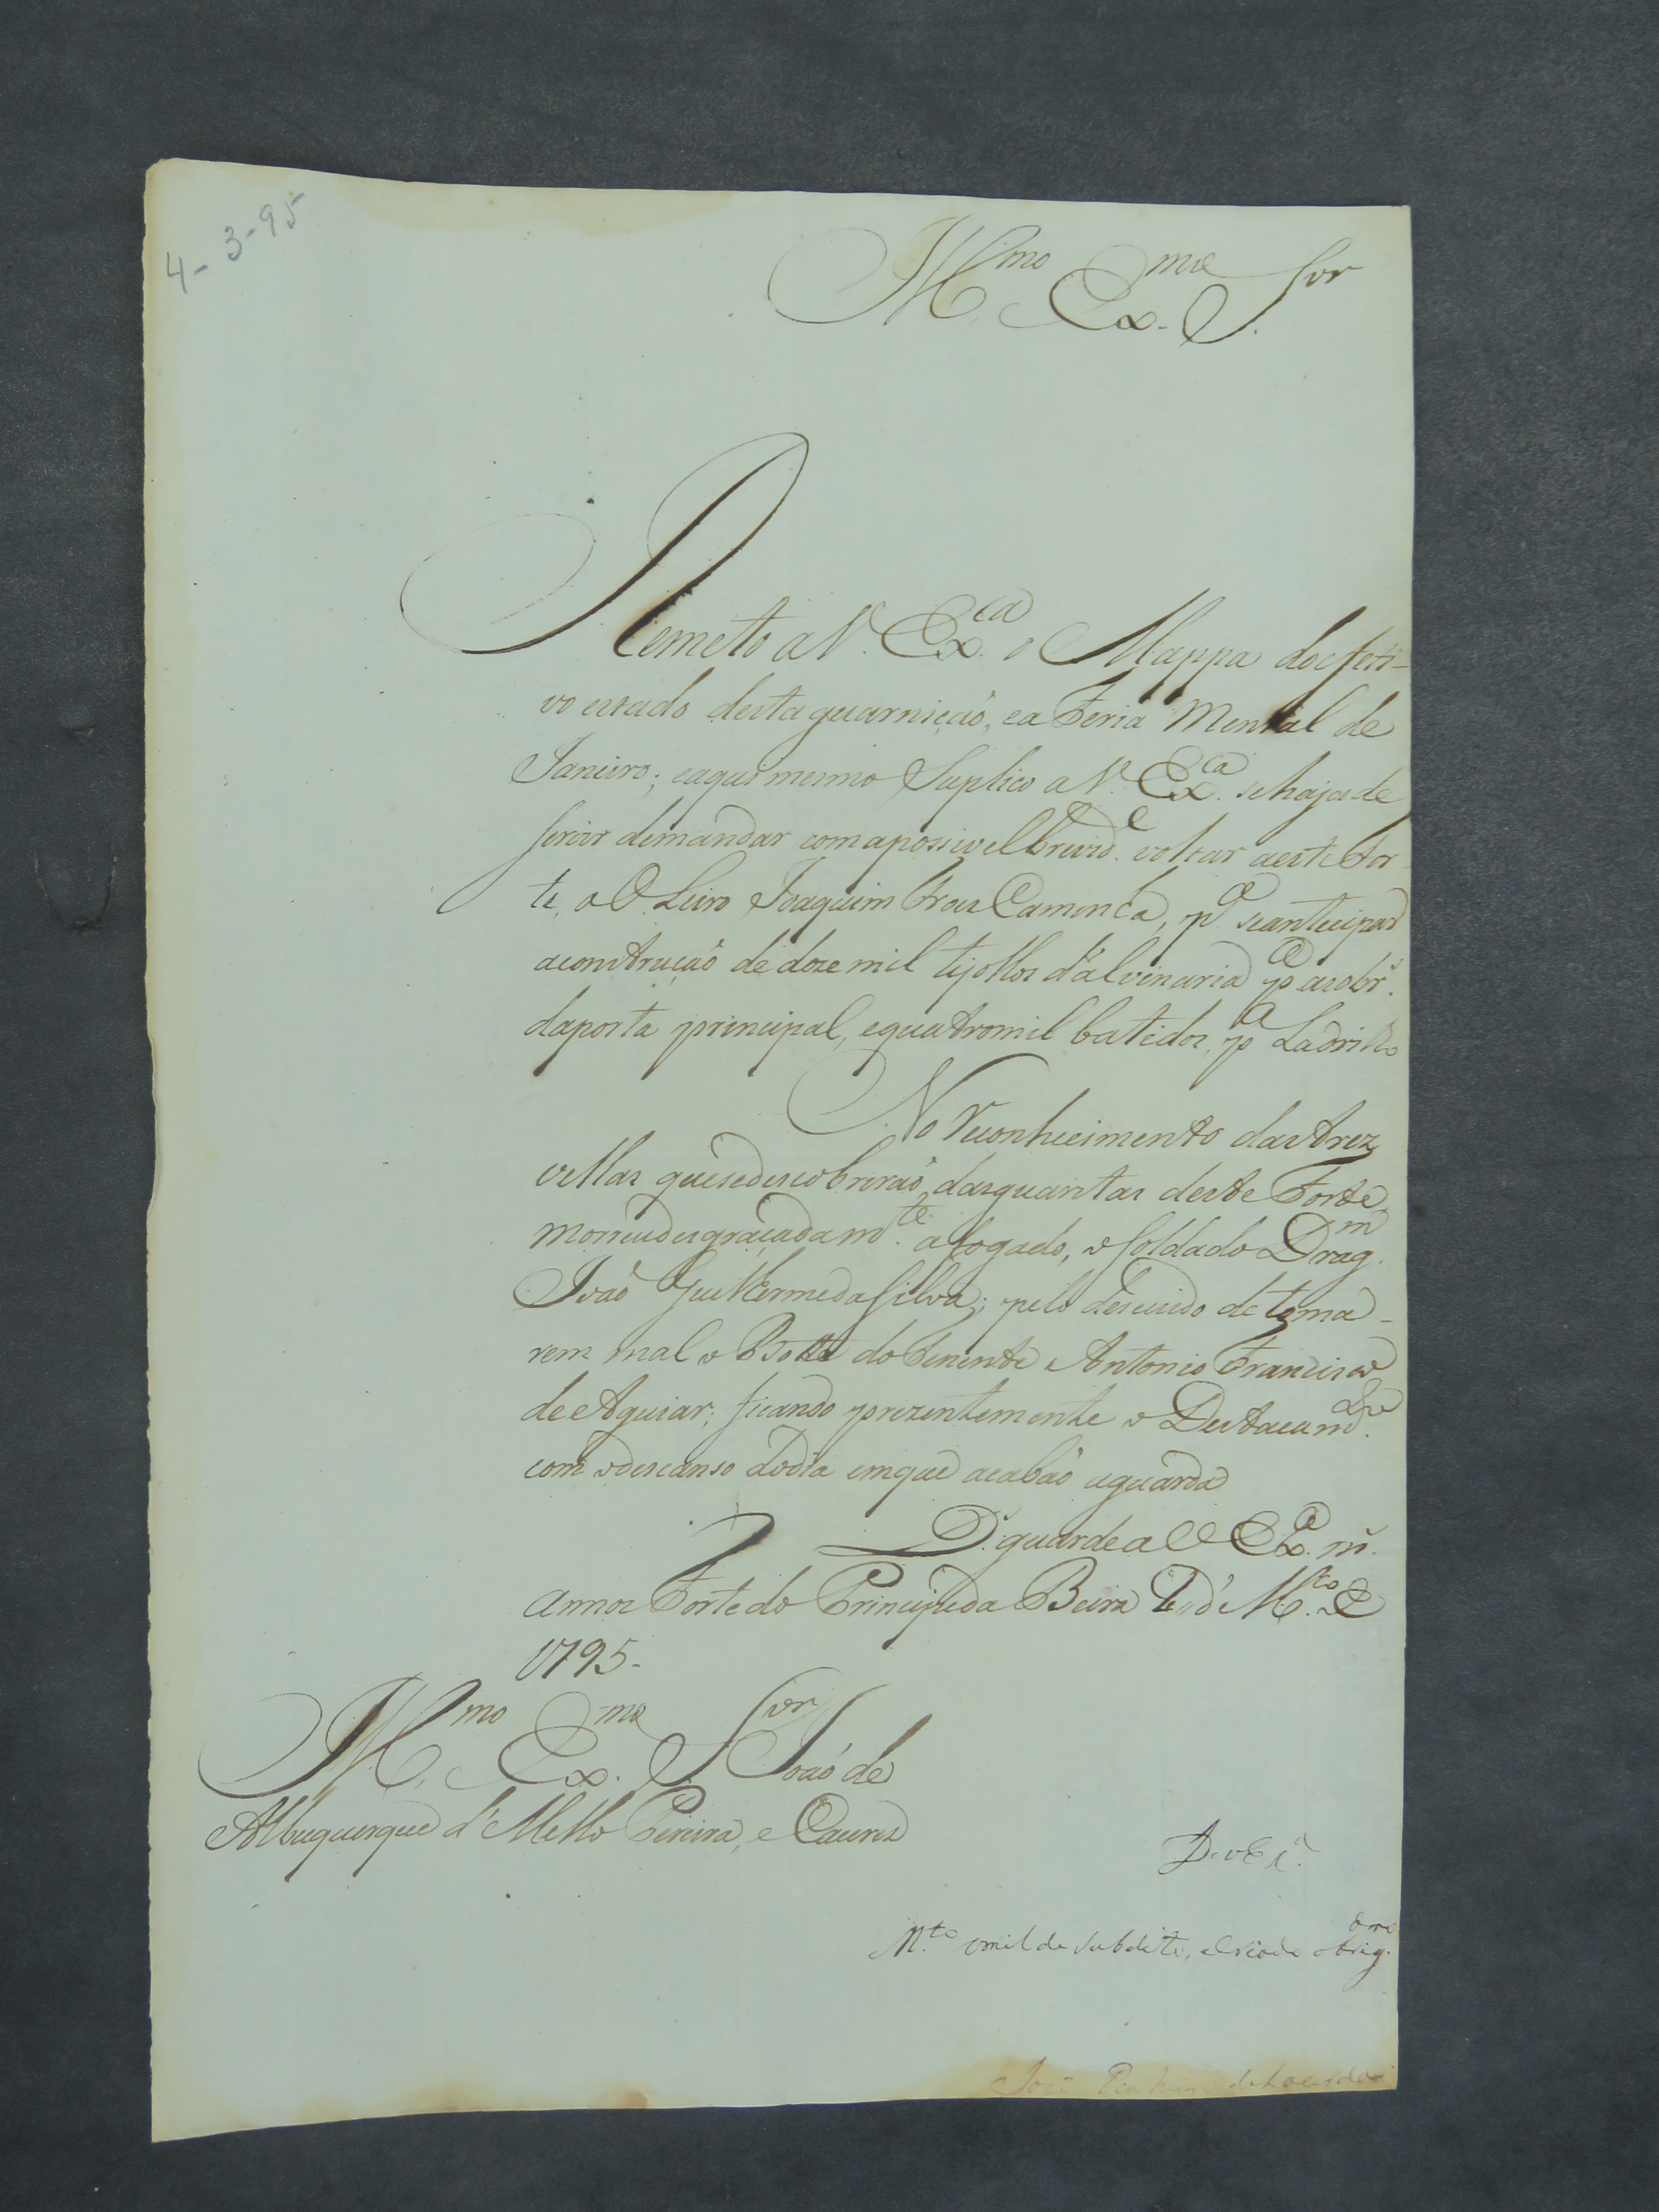 4-3-95
Ill.mo Ex.mo S.or
Remeto a V. Ex.ca o Mappa do efeti-
vo estado desta guarnição, e a Feria Mensal de
Janeiro; e aqui mesmo Suplico a V. Ex.ca se haja de
servir de mandar com a possivel brevid.e voltar a este For
te, o Oleiro Joaquim Joze p.a se antecipar
a construção de doze mil tijollos d'alvinaria p.a as obr.s
da porta principal, e quatro mil batidos, p.a Ladrilho
No reconhecimento das trez
vellas que se descobrirão das guaritas deste Forte,
morreu desgraçadam.te afogado, o soldado Drag.m
João Guilherme da Silva; pelo descuido de toma-
rem mal o Bote do Tenente Antonio Francisco
de Aguiar; ficando prezentemente o Destacam.to
com o descanso do dia em que acabão a guarda
D.s guarde a V Ex.a m.s
annos Forte do Principe da Beira d' M.ço de
1795.
Ill.mo Ex.mo S.or João de
Albuquerque d' Mello Pereira, e Caceres
De V Ex.a
M.to umilde subdito, e criado obrig.dmo
Joze Pinheiro de Lacerda